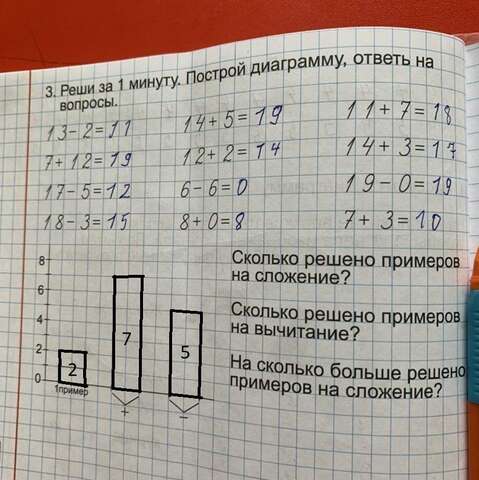 3. Реши за 1 минуту. Построй диаграмму, ответь на
вопросы.
13-2=11 14+5=19 11+7=18
7+12=19 12+2=14 14+3=17
17-5=12 6-6=0 19-0=19
18-3=15 8+0=8 7+3=10
Сколько решено примеров
на сложение?
Сколько решено примеров
на вычитание?
На сколько больше решено
примеров на сложение?
8
6
4
2
0
2
7
5
1пример
+
−